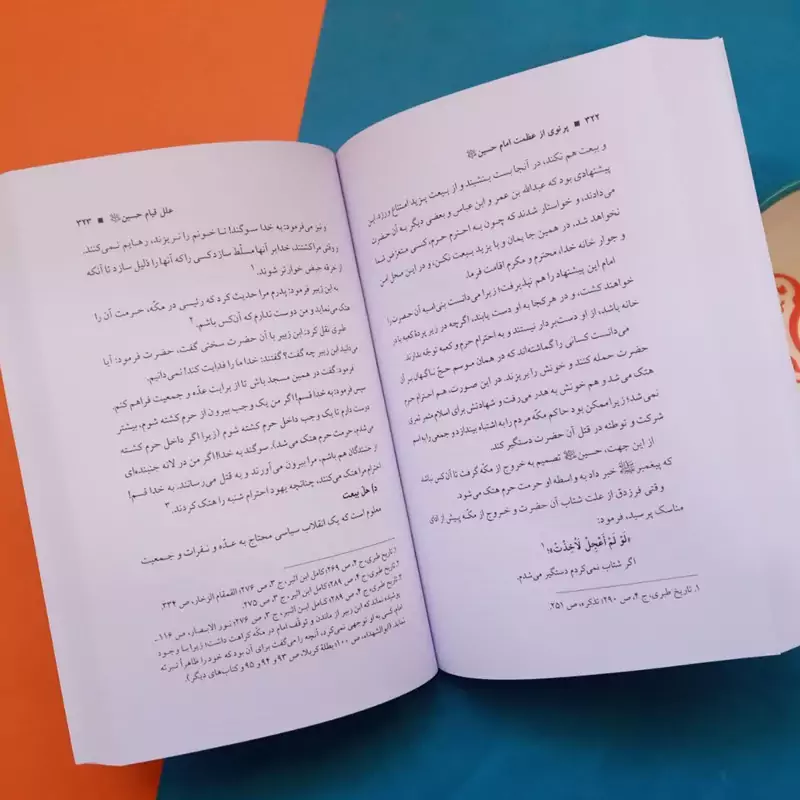 ۳۲۲ ■ پرتوی از عظمت امام حسین
و بیعت هم نکند، در آنجا بست بنشیند و از بیعت یزید امتناع ورزد. این
پیشنهادی بود که عبدالله بن عمر و ابن عباس و بعضی دیگر به آن حضرت
می‌دادند، و خواستار شدند که چون به احترام حرم، کسی متعرّض شما
نخواهد شد، در همین جا بمان و با یزید بیعت نکن، و در این محل امن
و جوار خانه خدا، محترم و مکرم اقامت فرما.
امام این پیشنهاد را هم نپذیرفت؛ زیرا می‌دانست بنی‌امیه آن حضرت را
خواهند کشت، و در هر کجا به او دست یابند، اگرچه در زیر پردۀ کعبه یا در
خانه باشد، از او دست‌بردار نیستند و به احترام حرم و کعبه توجّه ندارند.
می‌دانست کسانی را گماشته‌اند که در همان موسم حجّ ناگهان بر آن
حضرت حمله کنند و خونش را بریزند. در این صورت، هم احترام حرم
هتک می‌شد و هم خونش به هدر می‌رفت و شهادتش برای اسلام مثمر ثمری
نمی‌شد؛ زیرا ممکن بود حاکم مکّه مردم را به اشتباه بیندازد و جمعی را به اسم
شرکت و توطئه در قتل آن حضرت دستگیر کند.
از این جهت، حسین تصمیم به خروج از مکّه گرفت تا آن‌کس نباشد
که پیغمبر خبر داد به واسطه او حرمت حرم هتک می‌شود.
و قتی فرزدق از علت شتاب آن حضرت و خروج از مکّه پیش از ادای
مناسک پرسید، فرمود:
«لَوْ لَمْ أَعْجِلْ لَأُخِذْتُ»؛۱
اگر شتاب نمی‌کردم دستگیر می‌شدم.
۱. تاریخ طبری، ج ۴، ص ۲۹۰؛ تذکره، ص ۲۵۱.
علل قیام حسین ■ ۳۲۳
و نیز می‌فرمود: به خدا سوگند! تا خونم را نریزند، رهایم نمی‌کنند.
وقتی مرا کشتند، خدا بر آنها مسلّط سازد کسی را که آنها را ذلیل سازد تا آنکه
از خرقه حیض خوارتر شوند.۱
به ابن زبیر فرمود: پدرم مرا حدیث کرد که رئیسی در مکّه، حرمت آن را
هتک می‌نماید و من دوست ندارم که آن‌کس باشم.۲
طبری نقل کرد: ابن زبیر با آن حضرت سخنی گفت، حضرت فرمود: آیا
می‌دانید ابن زبیر چه گفت؟ گفتند: خدا ما را فدایت کند! نمی‌دانیم.
فرمود: گفت در همین مسجد باش تا از برایت عدّه و جمعیت فراهم کنم.
سپس فرمود: به خدا قسم! اگر من یک وجب بیرون از حرم کشته شوم، بیشتر
دوست دارم تا یک وجب داخل حرم کشته شوم (زیرا اگر داخل حرم کشته
می‌شدم، حرمت حرم هتک می‌شد). سوگند به خدا! اگر من در لانه جنبنده‌ای
از جنبندگان هم باشم، مرا بیرون می‌آورند و به قتل می‌رسانند. به خدا قسم!
احترام مرا هتک می‌کنند، چنانچه یهود احترام شنبه را هتک کردند.۳
د) حلّ بیعت
معلوم است که یک انقلاب سیاسی محتاج به عدّه و نفرات و جمعیت
۱. تاریخ طبری، ج ۴، ص ۲۶۹؛ کامل ابن اثیر، ج ۳، ص ۲۷۶؛ القمقام الزخار، ص ۳۳۴.
۲. تاریخ طبری، ج ۴، ص ۲۸۹؛ کامل ابن اثیر، ج ۳، ص ۲۷۵.
۳. تاریخ طبری، ج ۴، ص ۲۸۹؛ کامل ابن اثیر، ج ۳، ص ۲۷۶؛ نور الابصار، ص ۱۱۶ ـ
پوشیده نماند که ابن زبیر از ماندن و توقّف امام در مکّه کراهت داشت؛ زیرا با وجود
امام کسی به او توجهی نمی‌کرد، آنچه را می‌گفت برای آن بود که خود را ظاهراً تبرئه
نماید. (ابوالشهداء، ص ۱۰۰؛ بطلة کربلا، ص ۹۳ و ۹۴ و ۹۵ و کتاب‌های دیگر).